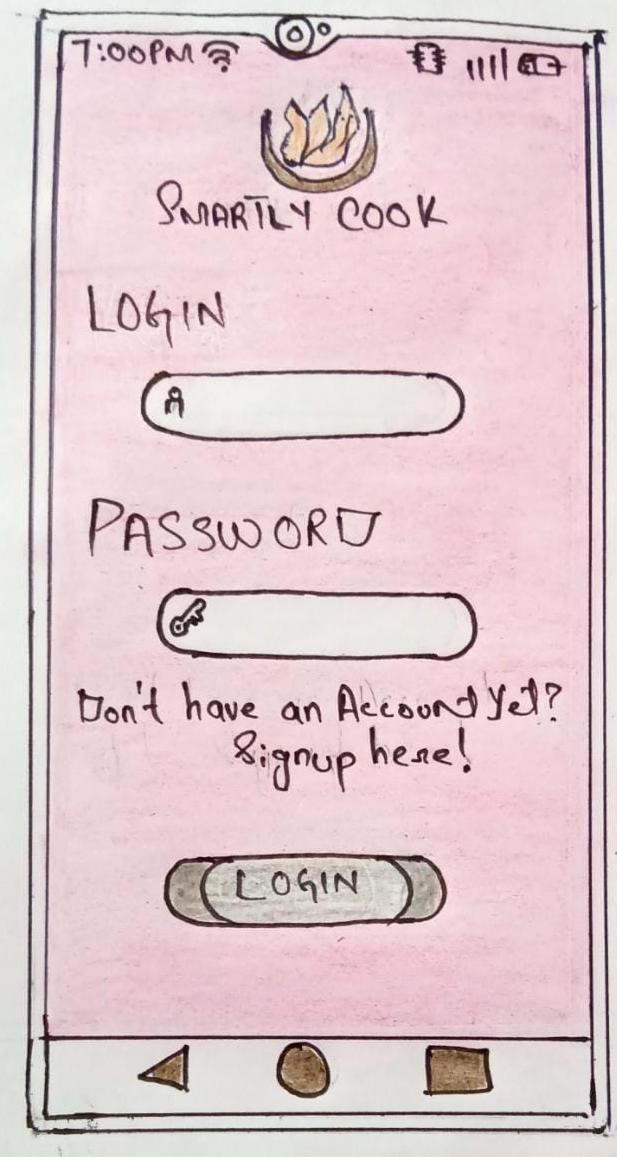 7:00PM
SMARTLY COOK
LOGIN
PASSWORD
Don't have an Account Yet?
Signup here!
LOGIN